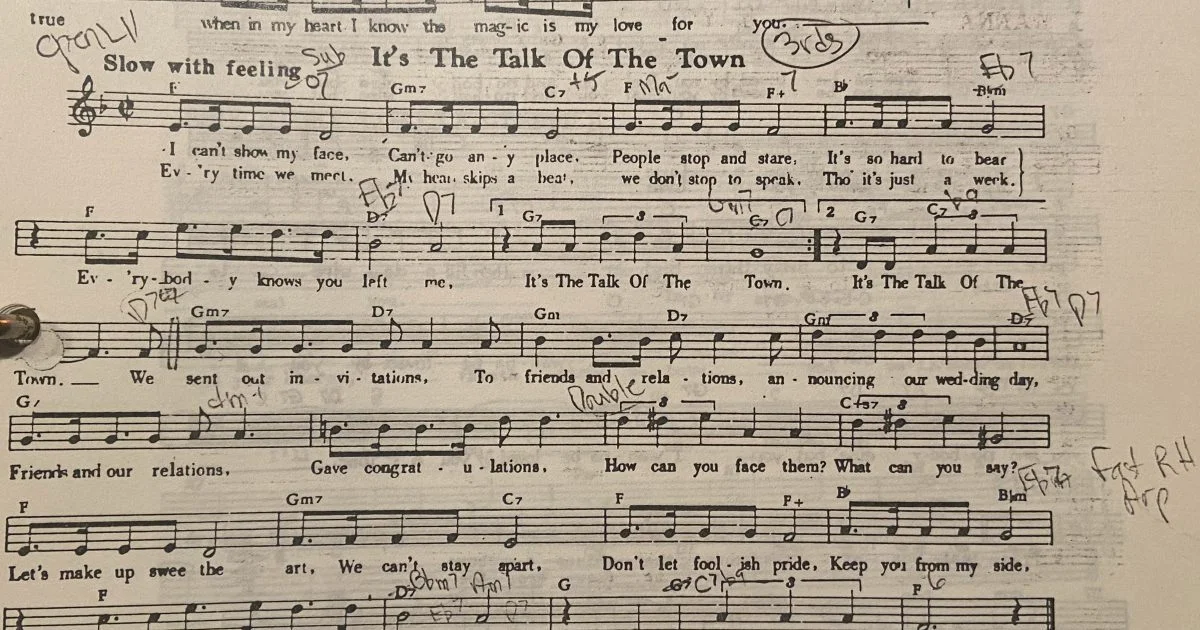 true when in my heart I know the mag-ic is my love for you.
Open LV
3rds
Slow with feeling
Sub
It's The Talk Of The Town
F Gm7 C7 +5 F Ma F+ 7 Bb Bbm Eb7
I can't show my face, Can't go an-y place, People stop and stare, It's so hard to bear
Ev-'ry time we meet, My heart skips a beat, we don't stop to speak, Tho' it's just a week.
F D7 Eb7 D7 1 G7 3 C7 2 G7 C7 b9 3
Ev-'ry-bod-y knows you left me, It's The Talk Of The Town. It's The Talk Of The
D7 Gm7 D7 Gm D7 Gm 3 D7 Eb7 D7
Town. We sent out in-vi-tations, To friends and rela-tions, an-nouncing our wed-ding day,
G7 Double 3 C+57 3
Friends and our relations, Gave congrat-u-lations, How can you face them? What can you say?
Fast RH
Arp
F Gm7 C7 F F+ Bb Bbm Eb7
Let's make up swee the art, We can't stay apart, Don't let fool-ish pride, Keep you from my side,
F D7 Bbm7 Eb7 Am7 D7 G C7 b9 3 F 6